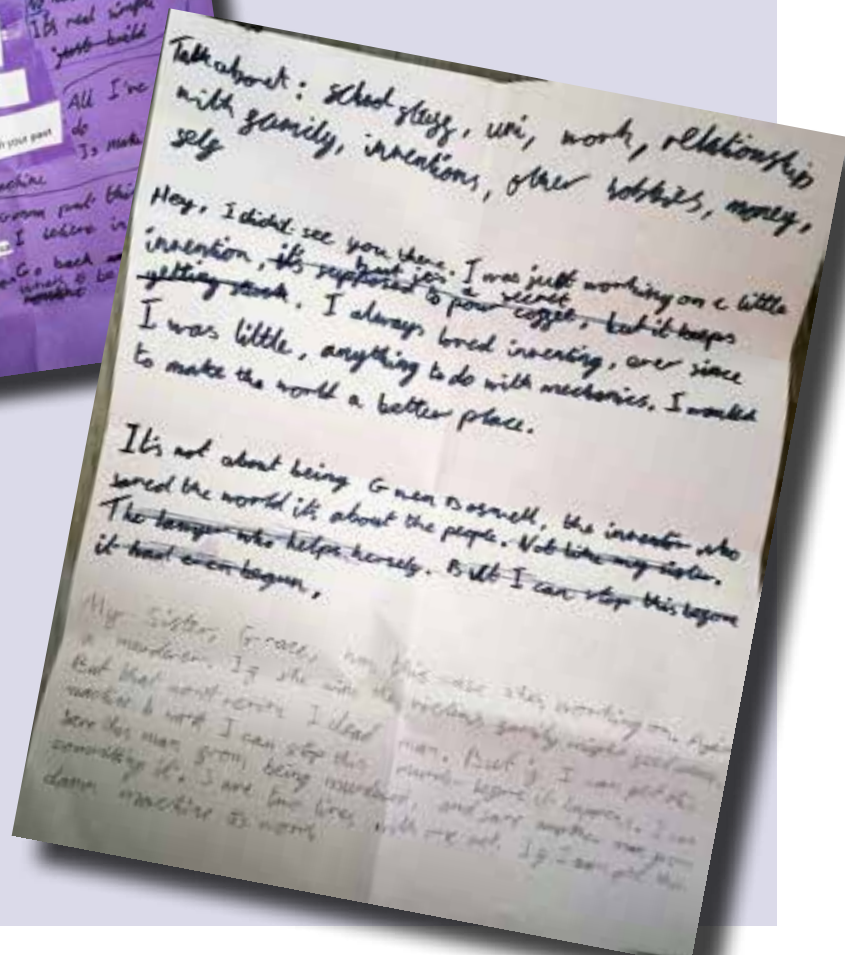 Its real simple
just build
All I've
do
Is make
h your past
machine
I where in
Go back
Talk about: school stuff, uni, work, relationship
with family, inventions, other hobbies, money,
self
Hey, I didnt see you there. I was just working on a little
but its a secret
invention, its supposed to pour coffee, but it keeps
getting stuck. I always loved inventing, ever since
I was little, anything to do with mechanics. I wanted
to make the world a better place.
It's not about being Gwen Boswell, the inventor who
saved the world its about the people. Not like my sister.
The lawyer who helps herself. But I can stop this before
it had even begun,
My sister, Grace, has this case shes working on.
a murderer. If she wins the victims family might get
But that wont revive 1 dead man. But if I can get this
machine to work I can stop this murder before it happens. I can
save this man from being murdered, and save another man from
committing it. Save two lives with one act. If I can get this
damn machine to work